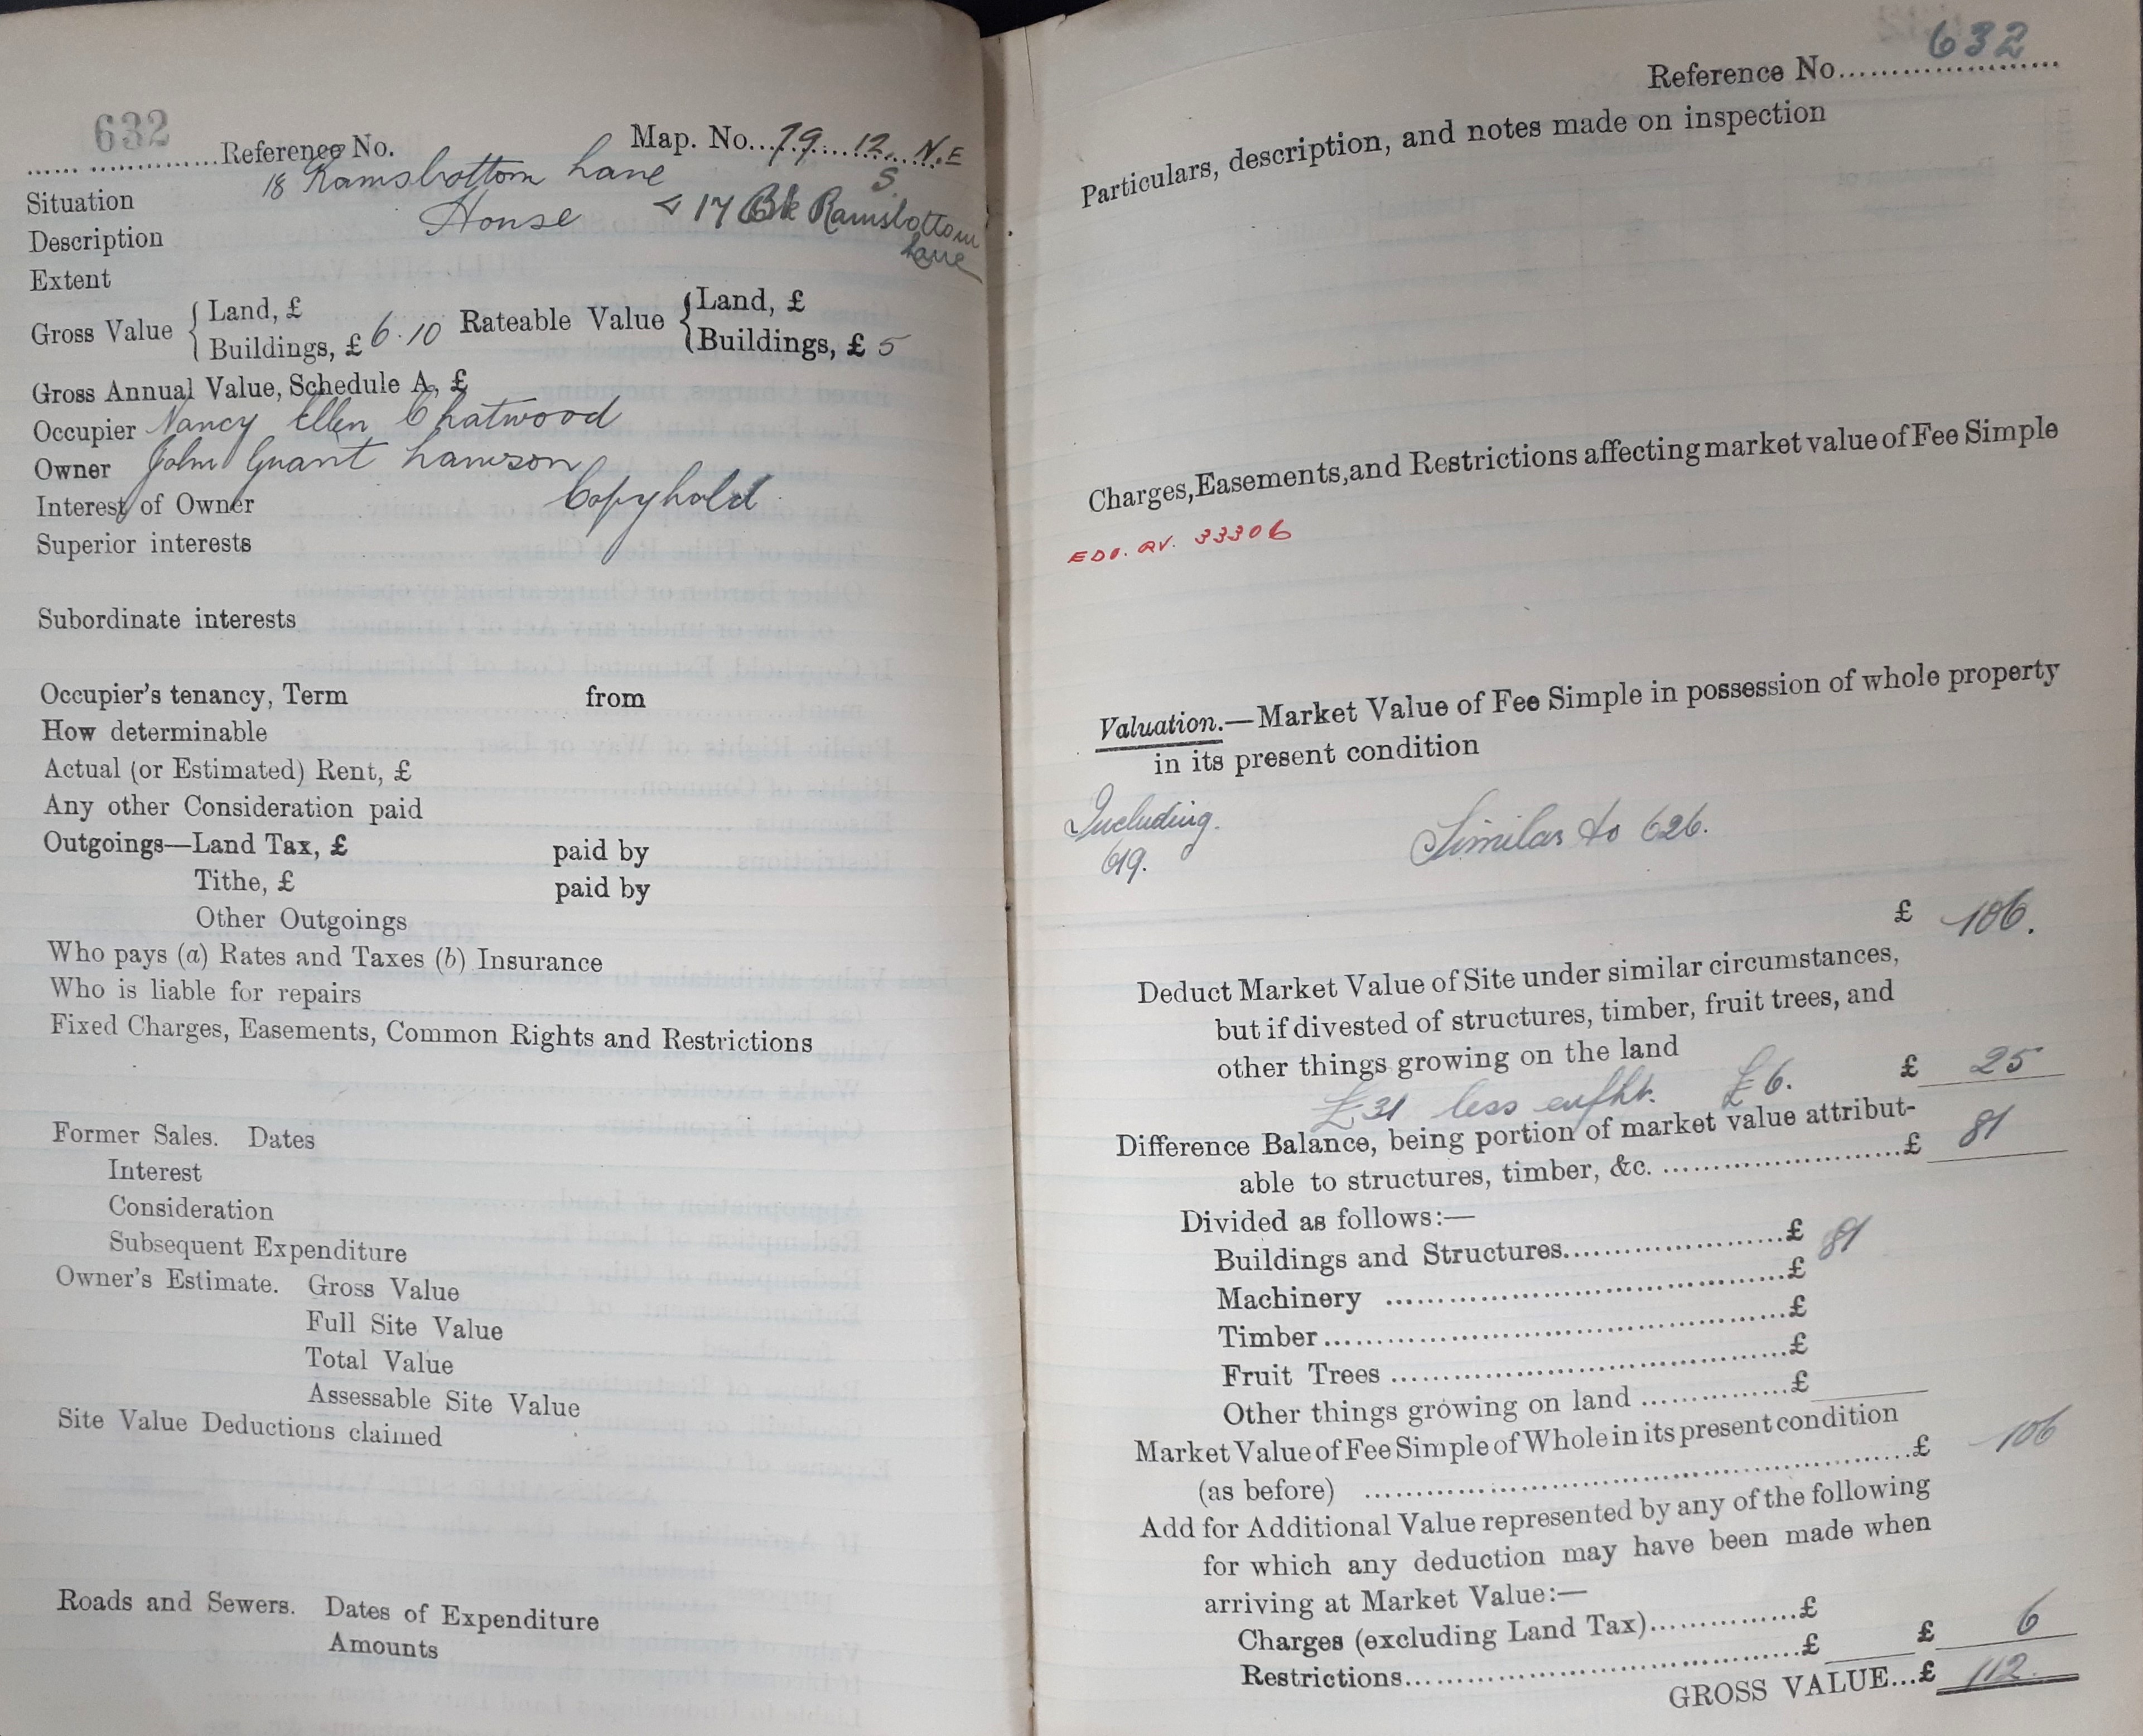 632
Reference No. Map. No. 79. 12. N.E
S.
Situation 18 Ramsbottom Lane
& 17 Bk Ramsbottom Lane
Description House
Extent
Gross Value { Land, £ Rateable Value { Land, £
Buildings, £ 6.10 Buildings, £ 5
Gross Annual Value, Schedule A, £
Occupier Nancy Ellen Chatwood
Owner John Grant Lawson
Interest of Owner Copyhold
Superior interests
Subordinate interests
Occupier's tenancy, Term from
How determinable
Actual (or Estimated) Rent, £
Any other Consideration paid
Outgoings—Land Tax, £ paid by
Tithe, £ paid by
Other Outgoings
Who pays (a) Rates and Taxes (b) Insurance
Who is liable for repairs
Fixed Charges, Easements, Common Rights and Restrictions
Former Sales. Dates
Interest
Consideration
Subsequent Expenditure
Owner's Estimate. Gross Value
Full Site Value
Total Value
Assessable Site Value
Site Value Deductions claimed
Roads and Sewers. Dates of Expenditure
Amounts
Reference No. 632
Particulars, description, and notes made on inspection
Charges, Easements, and Restrictions affecting market value of Fee Simple
33306
Valuation.—Market Value of Fee Simple in possession of whole property
in its present condition
Including Similar to 626.
619.
£ 106.
Deduct Market Value of Site under similar circumstances,
but if divested of structures, timber, fruit trees, and
other things growing on the land £ 25
£31 less enfht. £6.
Difference Balance, being portion of market value attribut-
able to structures, timber, &c. £ 81
Divided as follows:—
Buildings and Structures £ 81
Machinery £
Timber £
Fruit Trees £
Other things growing on land £
Market Value of Fee Simple of Whole in its present condition
(as before) £ 106
Add for Additional Value represented by any of the following
for which any deduction may have been made when
arriving at Market Value:—
Charges (excluding Land Tax) £
Restrictions £ £ 6
GROSS VALUE...£ 112.